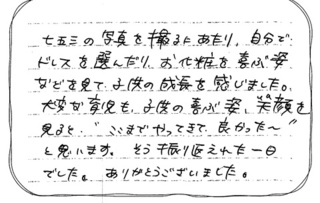 七五三の写真を撮るにあたり、自分で
ドレスを選んだり、お化粧を喜ぶ姿
などを見て、子供の成長を感じました。
大変な育児も、子供の喜ぶ姿、笑顔を
見ると、"ここまでやってきて、良かった〜"
と思います。そう振り返えれた一日
でした。ありがとうございました。